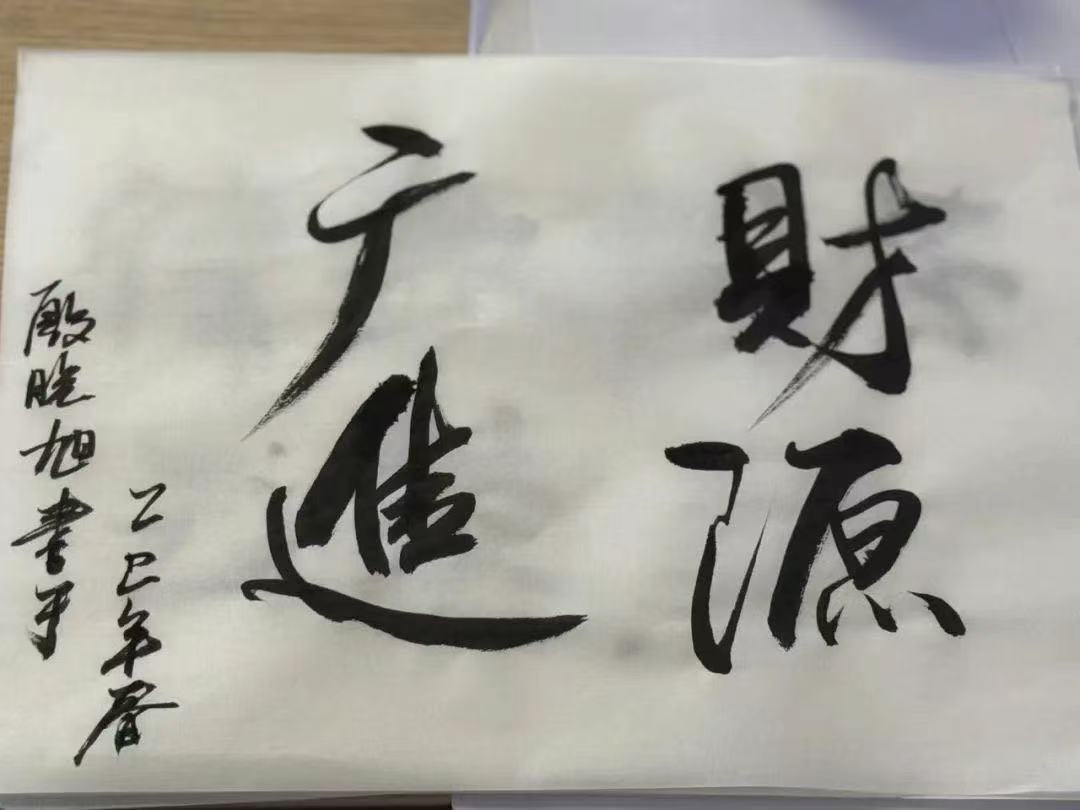 財源
广進
乙巳年
殷晓旭書于